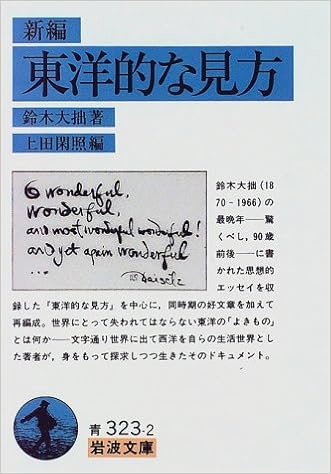 新編
東洋的な見方
鈴木大拙著
上田閑照編
O wonderful,
wonderful,
and most wonderful wonderful!
and yet again wonderful
...
Daisetz
鈴木大拙(18
70-1966)の
最晩年——驚
くべし,90歳
前後——に書
かれた思想的
エッセイを収
録した『東洋的な見方』を中心に,同時期の好文章を加えて
再編成。世界にとって失われてはならない東洋の「よきもの」
とは何か——文字通り世界に出て西洋を自らの生活世界とし
た著者が,身をもって探求しつつ生きたそのドキュメント。
青 323-2
岩波文庫